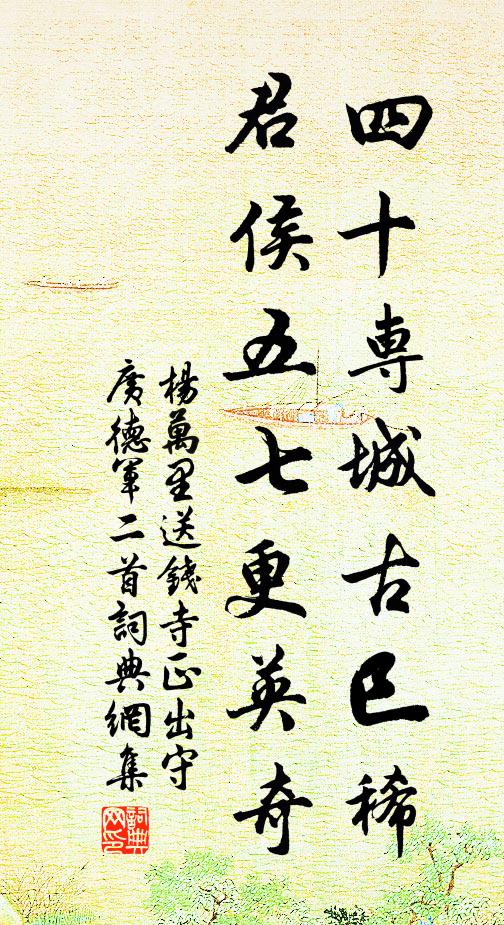 四十専城古已稀
君侯五七更英奇
楊萬里送錢寺正出守
廣德軍二首詞典網集
詞典
网印